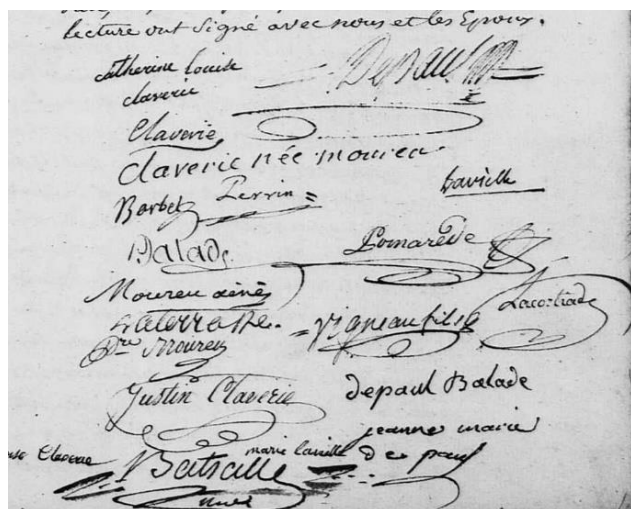 lecture ont signé avec nous et les Epoux.
catherine Louise
claverie
Depaul
Claverie
Claverie née moureu
Borbet Perrin
Lavielle
Balade
Pomarède
Moureu ainé
Laterrade
vigneau fils
Lacortiade
Moureu
Justin Claverie
depaul Balade
jeanne marie
de paul
Claverie
marie lavielle
Batsalle